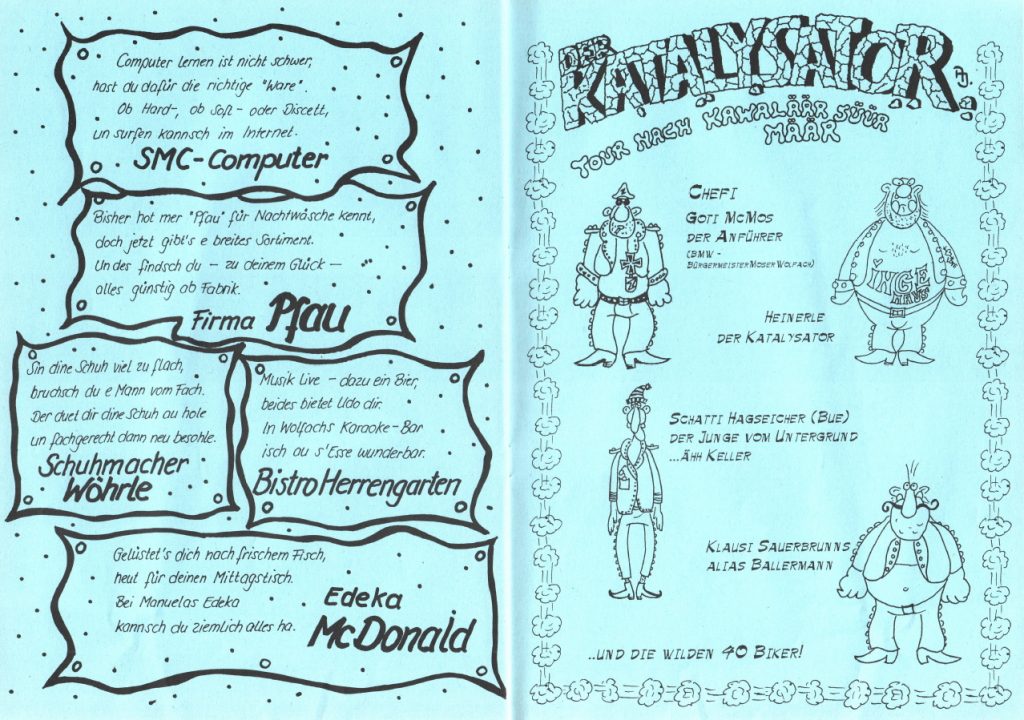 Computer lernen ist nicht schwer,
hast du dafür die richtige "Ware".
Ob Hard-, ob Soft - oder Discett,
un surfen kannsch im Internet.
SMC-Computer
Bisher hot mer "Pfau" für Nachtwäsche kennt,
doch jetzt gibt's e breites Sortiment.
Un des findsch du - zu deinem Glück -
alles günstig ab Fabrik.
Firma Pfau
Sin dine Schuh viel zu flach,
bruchsch du e Mann vom Fach.
Der duet dir dine Schuh au hole
un fachgerecht dann neu besohle.
Schuhmacher
Wöhrle
Musik Live - dazu ein Bier,
beides bietet Udo dir.
In Wolfachs Karaoke-Bar
isch au s'Esse wunderbar.
Bistro Herrengarten
Gelüstet's dich nach frischem Fisch,
heut für deinen Mittagstisch.
Bei Manuelas Edeka
kannsch du ziemlich alles ha.
Edeka
McDonald
DER
KATALYSATOR
TOUR NACH KAWALÄÄR SÜÜR
MÄÄR
CHEFI
GOTI MCMOS
DER ANFÜHRER
(BMW -
BÜRGERMEISTER MOSER WOLFACH)
INGE
HEINERLE
DER KATALYSATOR
SCHATTI HAGSEICHER (BUE)
DER JUNGE VOM UNTERGRUND
...ÄHH KELLER
KLAUSI SAUERBRUNNS
ALIAS BALLERMANN
...UND DIE WILDEN 40 BIKER!